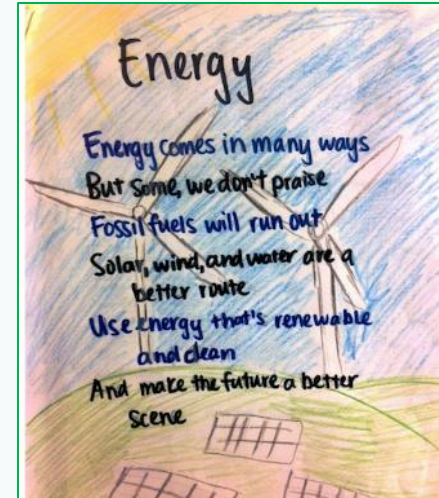 Energy
Energy comes in many ways
But some, we don't praise
Fossil fuels will run out
Solar, wind, and water are a
better route
Use energy that's renewable
and clean
And make the future a better
scene